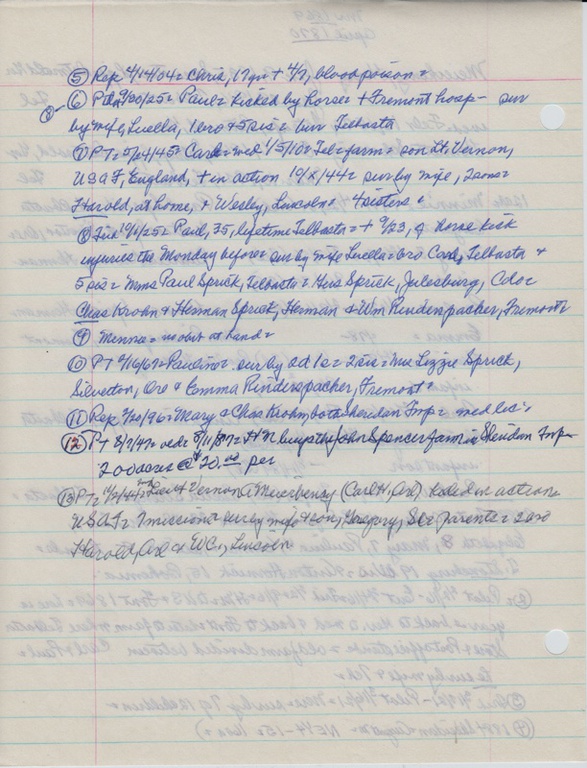 April 1870
⑤ Rep 4/14/04 = Chris, 17 yr + 4/7, blood poison =
8 - ⑥ 9/30/25 = Paul = kicked by horse + Fremont hosp - sur
by wife, Luella, 1 bro + 5 sis = bur Telbasta
⑦ PT = 5/24/45 = Carl = med 1/5/10 = Tel = farm = son Lt. Vernon,
USAF, England, + in action 10/x/44 = sur by wife, 2 sons =
Harold, at home, + Wesley, Lincoln = 4 sisters =
⑧ 10/1/25 = Paul, 35, lifetime Telbasta = + 9/23, of horse kick
injuries the Monday before = sur by wife Luella = bro Carl, Telbasta +
5 sis = Mmes Paul Spruck, Telbasta = Geo Spruck, Julesburg, Colo =
Chas Krohn + Herman Spruck, Herman + Wm Rinderspacher, Fremont
⑨ Minnie = no obit at hand =
⑩ PT 2/16/67 = Pauline = sur by ad 1 s = 2 sis = Mrs Lizzie Spruck,
Silverton, Ore + Emma Rinderspacher, Fremont =
⑪ Rep 2/20/96 = Mary + Chas Krohn, both Sheridan Twp = med lic =
⑫ PT 8/7/47 = John Spencer farm in Sheridan Twp =
200 acres @ $20.00 per
⑬ PT = 12/7/44 = Lieut Vernon (Carl H, Ad) killed in action =
USAF = missions = sur by wife + son, Gregory, parents = 2 bro
Harold, Ad + WC, Lincoln